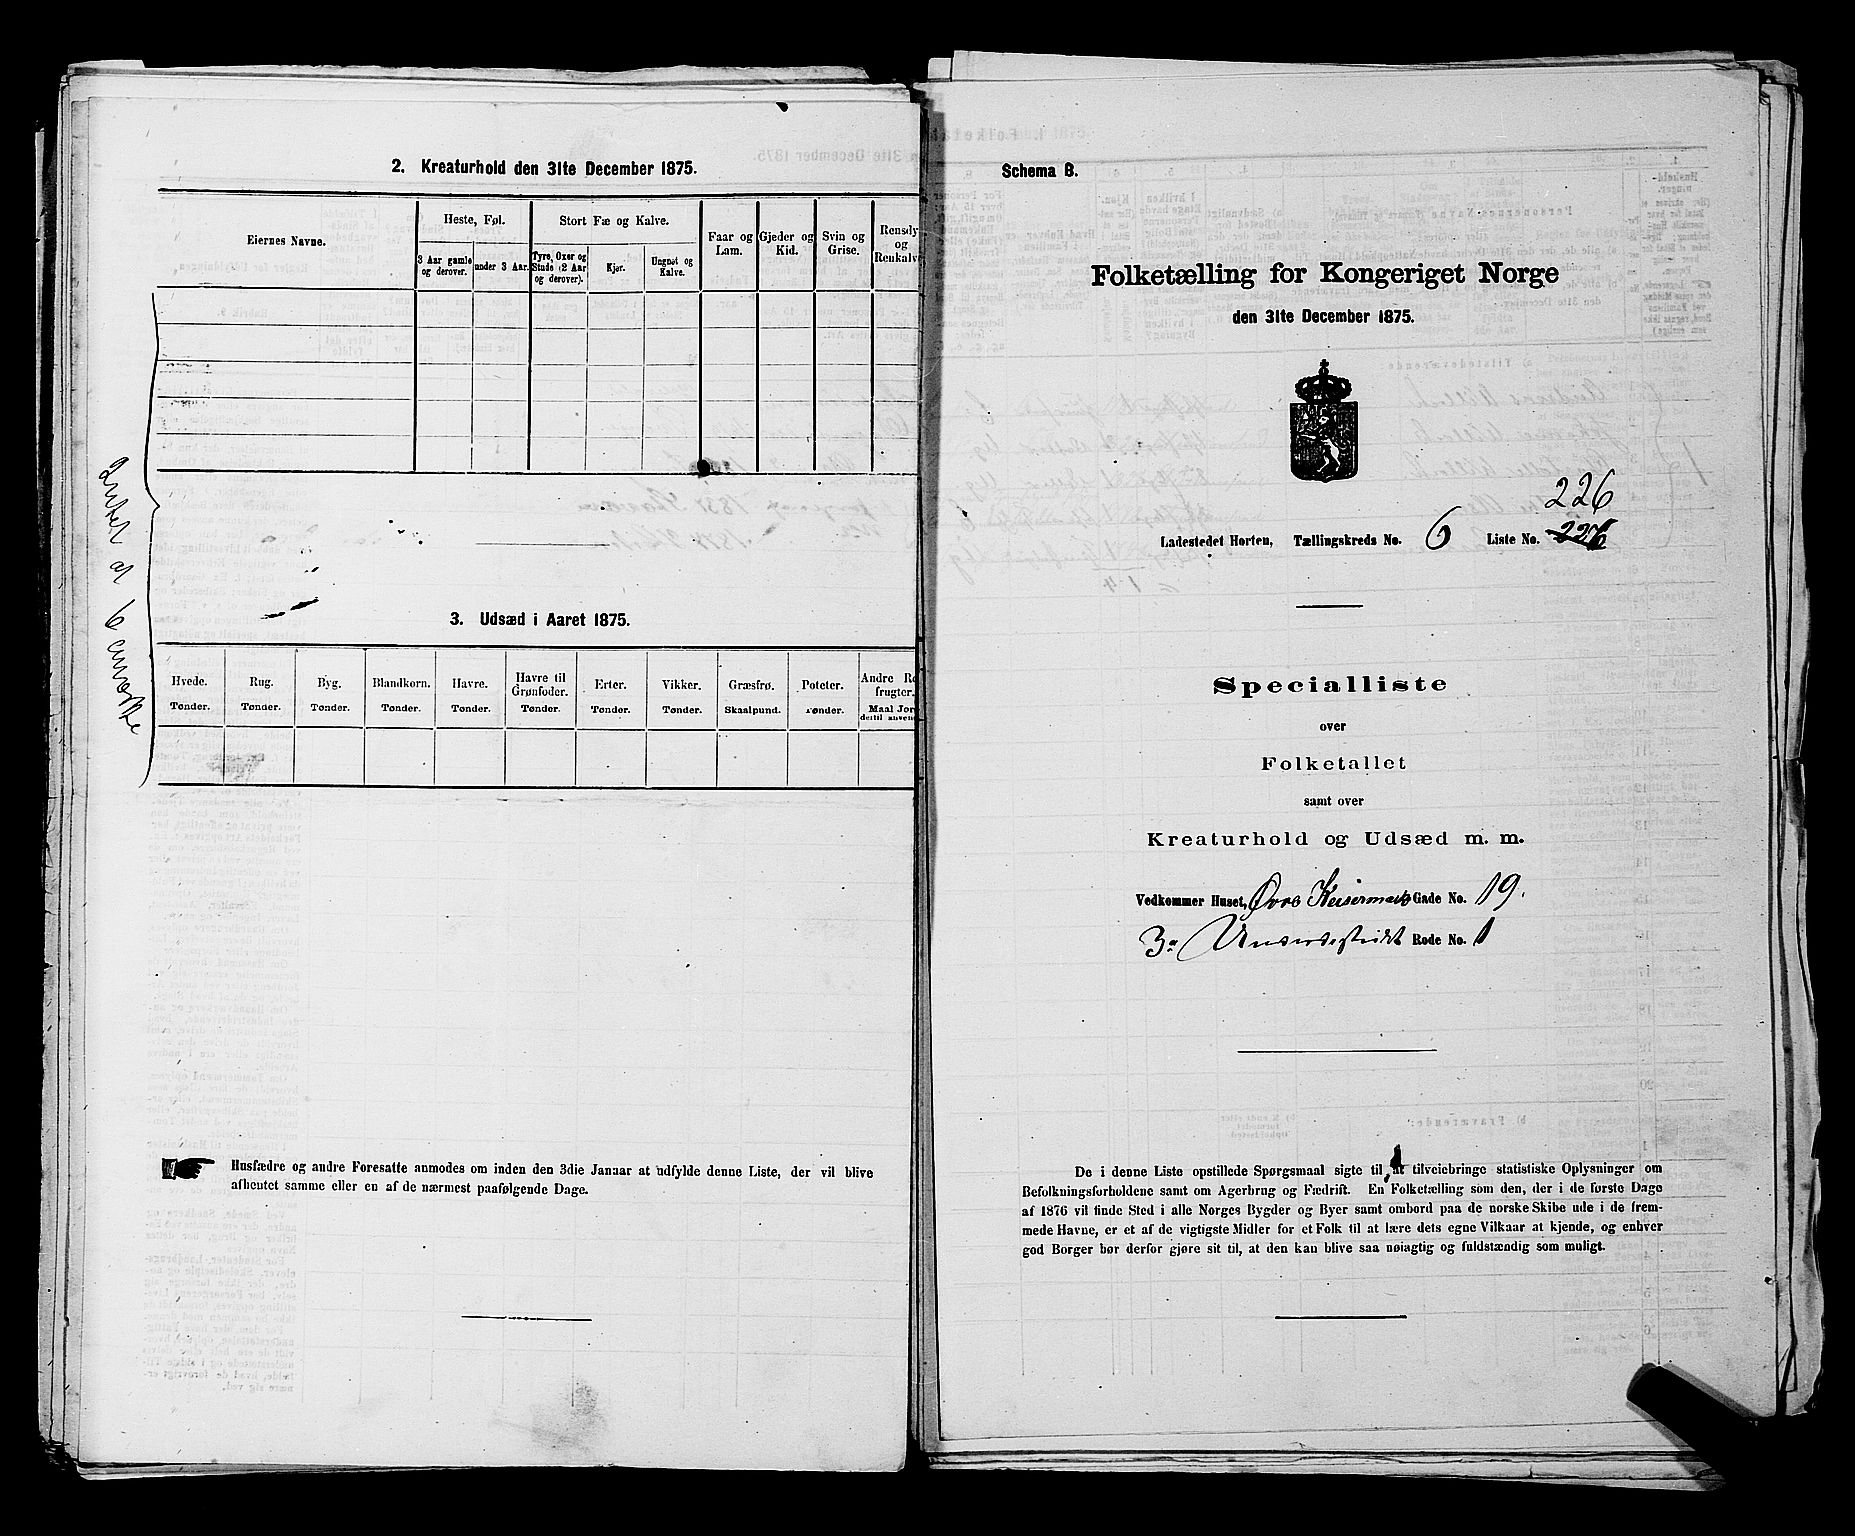 2. Kreaturhold den 31te December 1875.
Eiernes Navne.
Heste, Føl.
3 Aar gamle og derover.
under 3 Aar.
Stort Fæ og Kalve.
Tyre, Oxer og Stude (2 Aar og derover).
Kjør.
Ungnøt og Kalve.
Faar og Lam.
Gjeder og Kid.
Svin og Grise.
Rensdy
og
Renkalv
3. Udsæd i Aaret 1875.
Hvede.
Tønder.
Rug.
Tønder.
Byg.
Tønder.
Blandkorn.
Tønder.
Havre.
Tønder.
Havre til Grønfoder.
Tønder.
Erter.
Tønder.
Vikker.
Tønder.
Græsfrø.
Skaalpund.
Poteter.
Tønder.
Andre Ro
frugter.
Maal Jor
dertil anven
Husfædre og andre Foresatte anmodes om inden den 3die Januar at udfylde denne Liste, der vil blive
afhentet samme eller en af de nærmest paafølgende Dage.
Schema B.
Folketælling for Kongeriget Norge
den 31te December 1875.
226
Ladestedet Horten, Tællingskreds No. 6 Liste No.
Specialliste
over
Folketallet
samt over
Kreaturhold og Udsæd m. m.
Vedkommer Huset, Øvre Keisermarks Gade No. 19.
Rode No. 1
De i denne Liste opstillede Spørgsmaal sigte til at tilveiebringe statistiske Oplysninger om
Befolkningsforholdene samt om Agerbrug og Fædrift. En Folketælling som den, der i de første Dage
af 1876 vil finde Sted i alle Norges Bygder og Byer samt ombord paa de norske Skibe ude i de frem-
mede Havne, er et af de vigtigste Midler for et Folk til at lære dets egne Vilkaar at kjende, og enhver
god Borger bør derfor gjøre sit til, at den kan blive saa nøiagtig og fuldstændig som muligt.